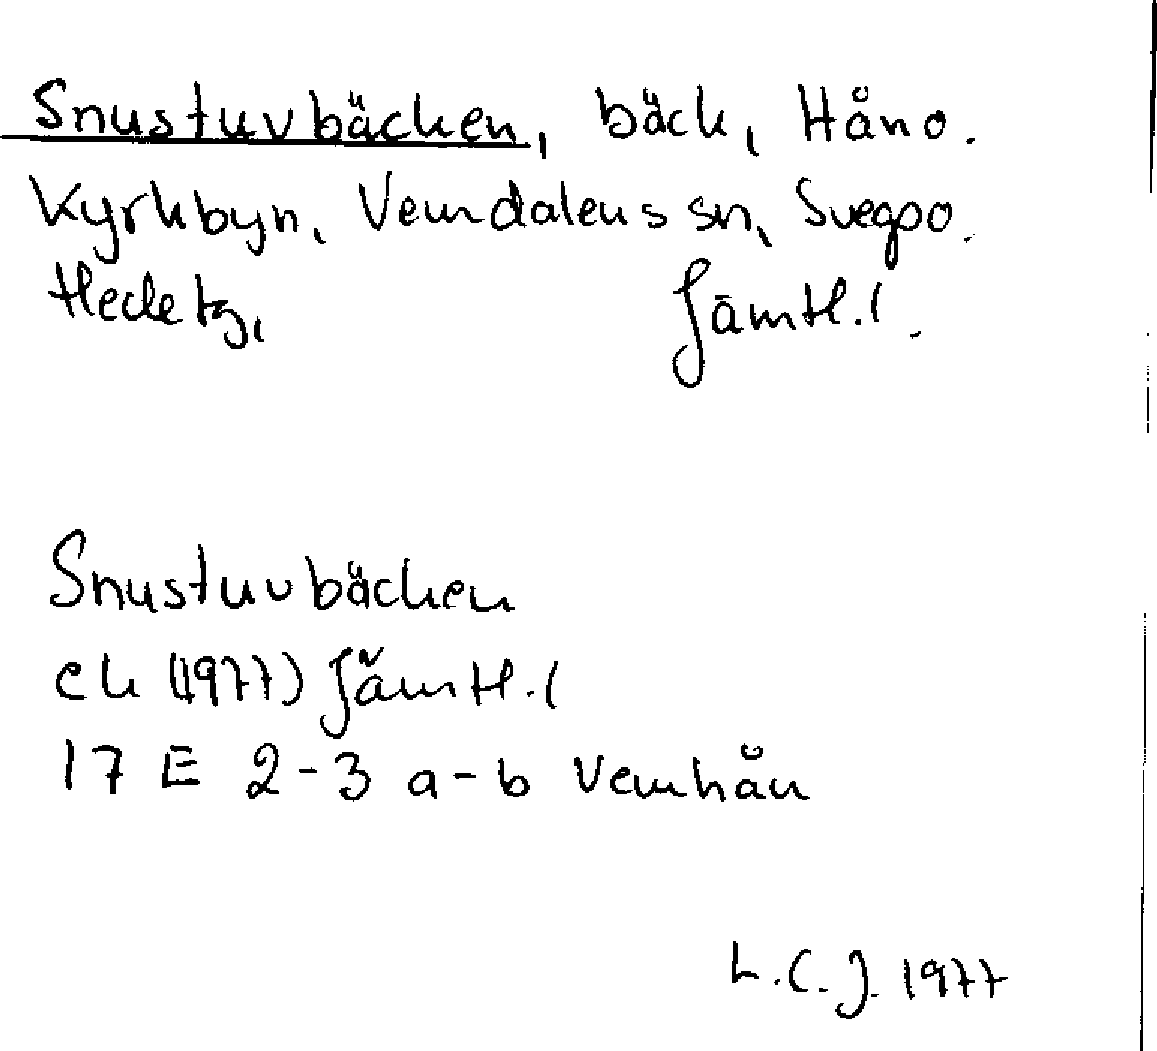 Snustuvbäcken, bäck, Håno.
Kyrkbyn, Vemdalens sn, Svegpo.
Hede tg,
Jämtl.l.
Snustuvbäcken
ek (1977) Jämtl.l
17 E 2-3 a-b Vemhån
L.C.J. 1977